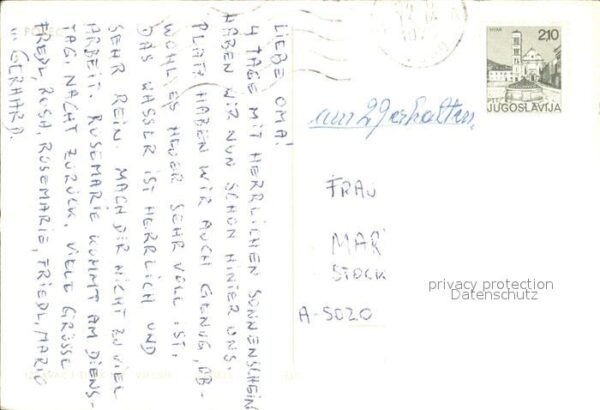 LIEBE OMA!
4 TAGE MIT HERRLICHEN SONNENSCHEIN
HABEN WIR NUN SCHON HINTER UNS.
PLATZ HABEN WIR AUCH GENUG, OB-
WOHL ES HEUER SEHR VOLL IST.
DAS WASSER IST HERRLICH UND
SEHR REIN. MACH DIR NICHT ZU VIEL
ARBEIT. ROSEMARIE KOMMT AM DIENS-
TAG NACHT ZURÜCK. VIELE GRÜSSE
FREDL, ROSA, ROSEMARIE, FRIEDL, MARIO
" GERHARD.
HVAR
2,10
JUGOSLAVIJA
am 29 erhalten.
FRAU
MAR
STOCK
A-5020
privacy protection
Datenschutz